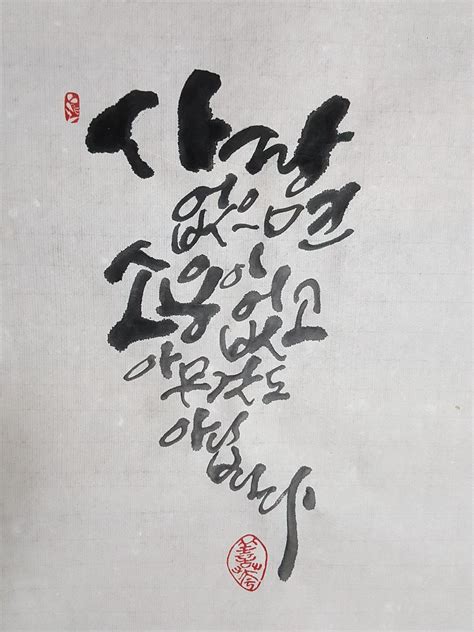 사랑
없으면
소용이
없고
아무것도
아닙니다